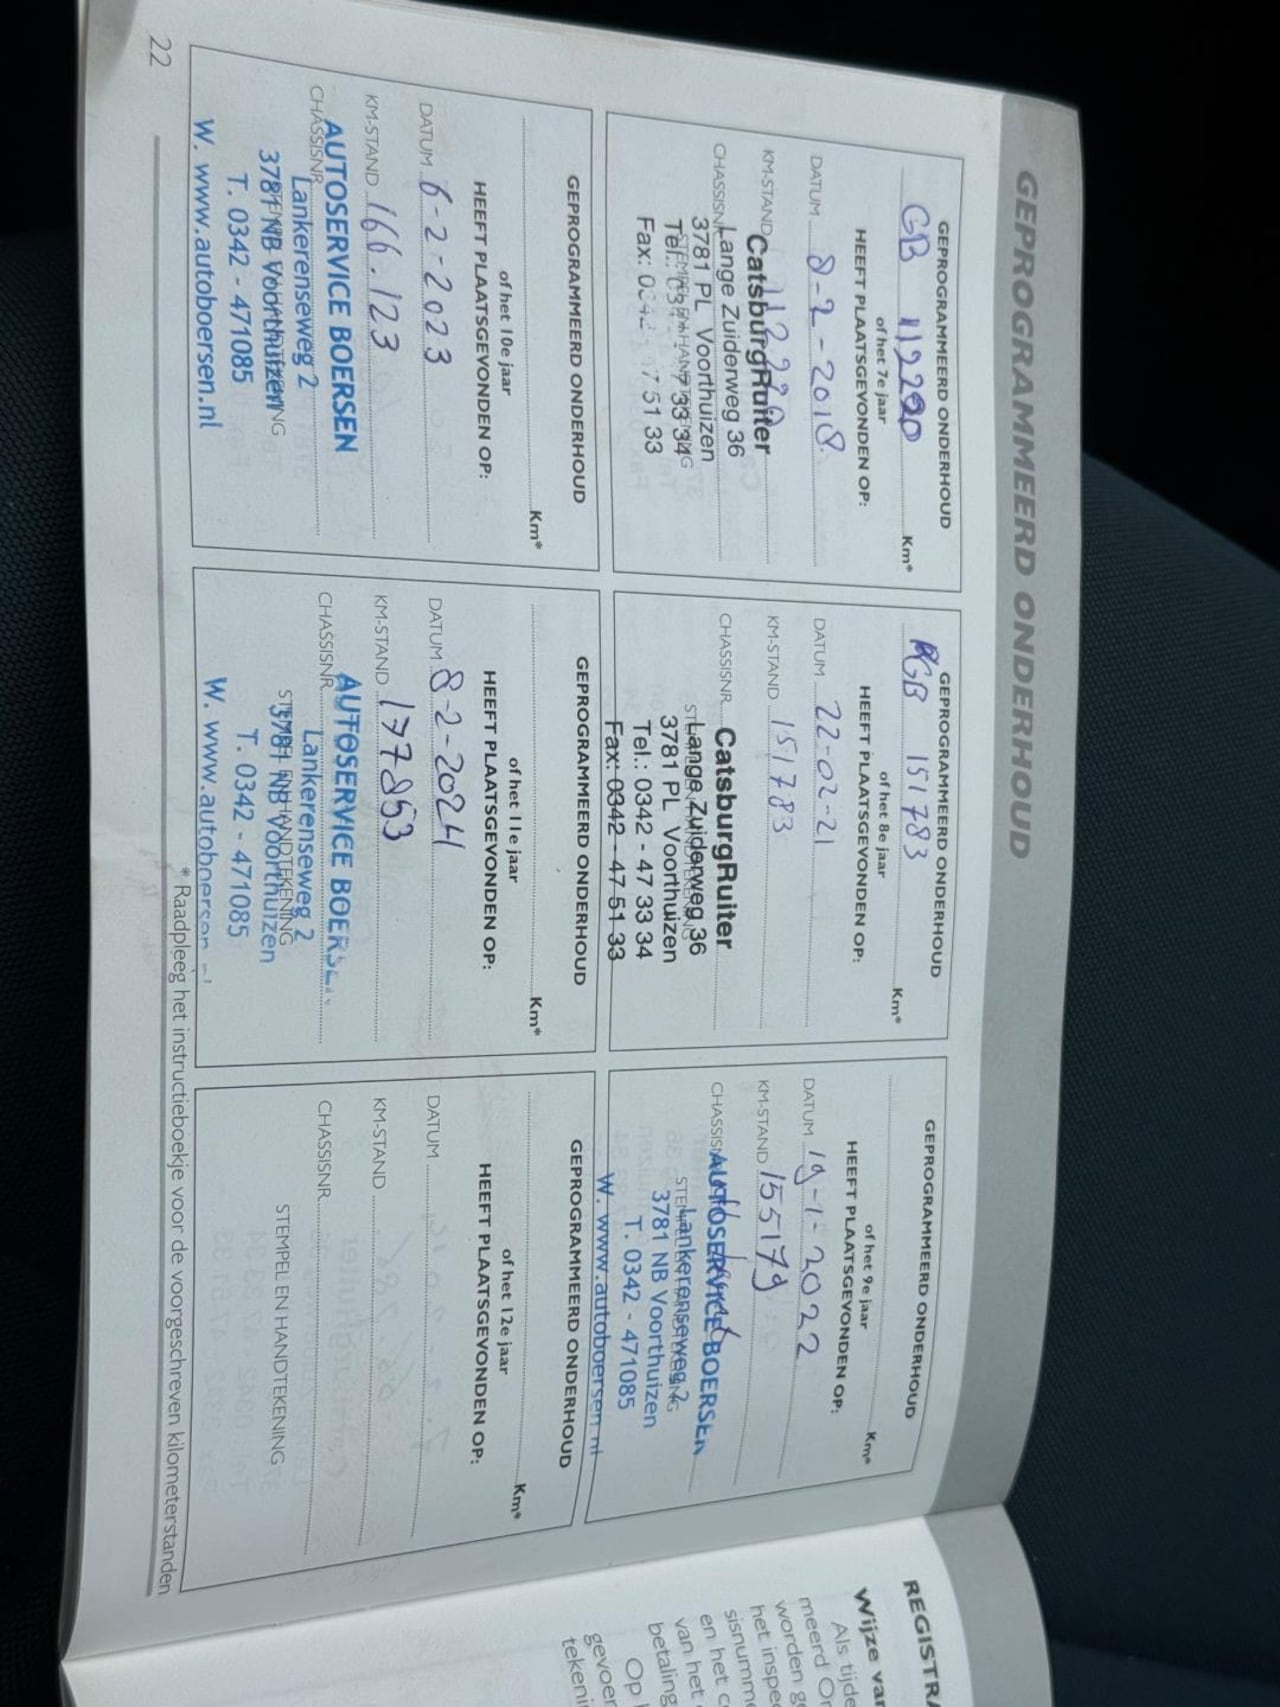 GEPROGRAMMEERD ONDERHOUD
GEPROGRAMMEERD ONDERHOUD
GB 112220 Km*
of het 7e jaar
HEEFT PLAATSGEVONDEN OP:
DATUM 8-2-2018
KM-STAND 112220
CatsburgRuiter
CHASSISNR
Lange Zuiderweg 36
3781 PL Voorthuizen
STEMPEL EN HANDTEKENING
Tel.: 0342 - 47 33 34
Fax: 0342 - 47 51 33
GEPROGRAMMEERD ONDERHOUD
GB 151783 Km*
of het 8e jaar
HEEFT PLAATSGEVONDEN OP:
DATUM 22-02-21
KM-STAND 151783
CHASSISNR
CatsburgRuiter
Lange Zuiderweg 36
STEMPEL EN HANDTEKENING
3781 PL Voorthuizen
Tel.: 0342 - 47 33 34
Fax: 0342 - 47 51 33
GEPROGRAMMEERD ONDERHOUD
Km*
of het 9e jaar
HEEFT PLAATSGEVONDEN OP:
DATUM 19-1-2022
KM-STAND 155179
CHASSISNR
AUTOSERVICE BOERSEN
Lankerenseweg 2
STEMPEL EN HANDTEKENING
3781 NB Voorthuizen
T. 0342 - 471085
W. www.autoboersen.nl
GEPROGRAMMEERD ONDERHOUD
Km*
of het 10e jaar
HEEFT PLAATSGEVONDEN OP:
DATUM 6-2-2023
KM-STAND 166.123
AUTOSERVICE BOERSEN
CHASSISNR
Lankerenseweg 2
STEMPEL EN HANDTEKENING
3781 NB Voorthuizen
T. 0342 - 471085
W. www.autoboersen.nl
GEPROGRAMMEERD ONDERHOUD
Km*
of het 11e jaar
HEEFT PLAATSGEVONDEN OP:
DATUM 8-2-2024
KM-STAND 177853
AUTOSERVICE BOERSEN
CHASSISNR
Lankerenseweg 2
STEMPEL EN HANDTEKENING
3781 NB Voorthuizen
T. 0342 - 471085
W. www.autoboersen
GEPROGRAMMEERD ONDERHOUD
Km*
of het 12e jaar
HEEFT PLAATSGEVONDEN OP:
DATUM
KM-STAND
CHASSISNR
STEMPEL EN HANDTEKENING
* Raadpleeg het instructieboekje voor de voorgeschreven kilometerstanden
22
REGISTRA
Wijze van
Als tijde
meerd On
worden g
het inspe
sisnumme
en het c
van het
betaling
Op
gevoer
tekeni